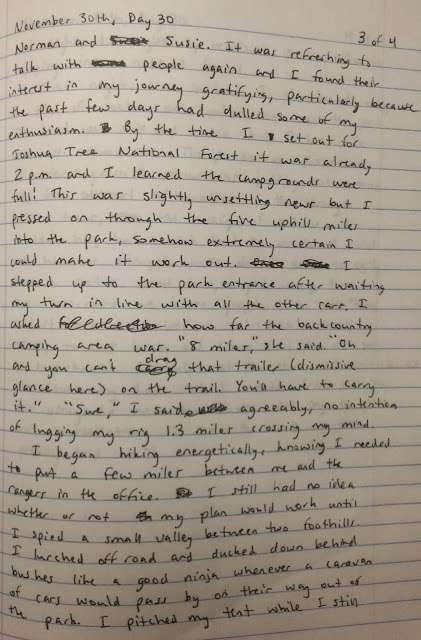 November 30th, Day 30
3 of 4
Norman and Susie. It was refreshing to
talk with people again and I found their
interest in my journey gratifying, particularly because
the past few days had dulled some of my
enthusiasm. By the time I set out for
Joshua Tree National Forest it was already
2 p.m. and I learned the campgrounds were
full! This was slightly unsettling news but I
pressed on through the five uphill miles
into the park, somehow extremely certain I
could make it work out. I
stepped up to the park entrance after waiting
my turn in line with all the other cars. I
asked how far the backcountry
camping area was. "8 miles," she said. "Oh
and you can't drag that trailer (dismissive
glance here) on the trail. You'll have to carry
it." "Sure," I said, agreeably, no intention
of lugging my rig 1.3 miles crossing my mind.
I began hiking energetically, knowing I needed
to put a few miles between me and the
rangers in the office. I still had no idea
whether or not my plan would work until
I spied a small valley between two foothills.
I lurched off road and ducked down behind
bushes like a good ninja whenever a caravan
of cars would pass by on their way out of
the park. I pitched my tent while I still